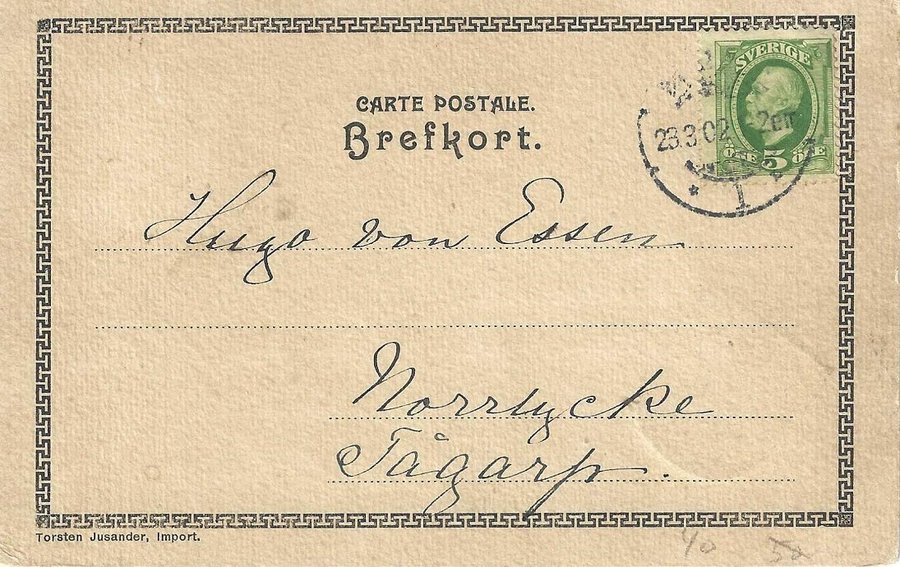 SVERIGE
ÖRE 5 ÖRE
23.3.02
1
CARTE POSTALE.
Brefkort.
Hugo von Essen
Norrlycke
Tågarp.
Torsten Jusander, Import.
40